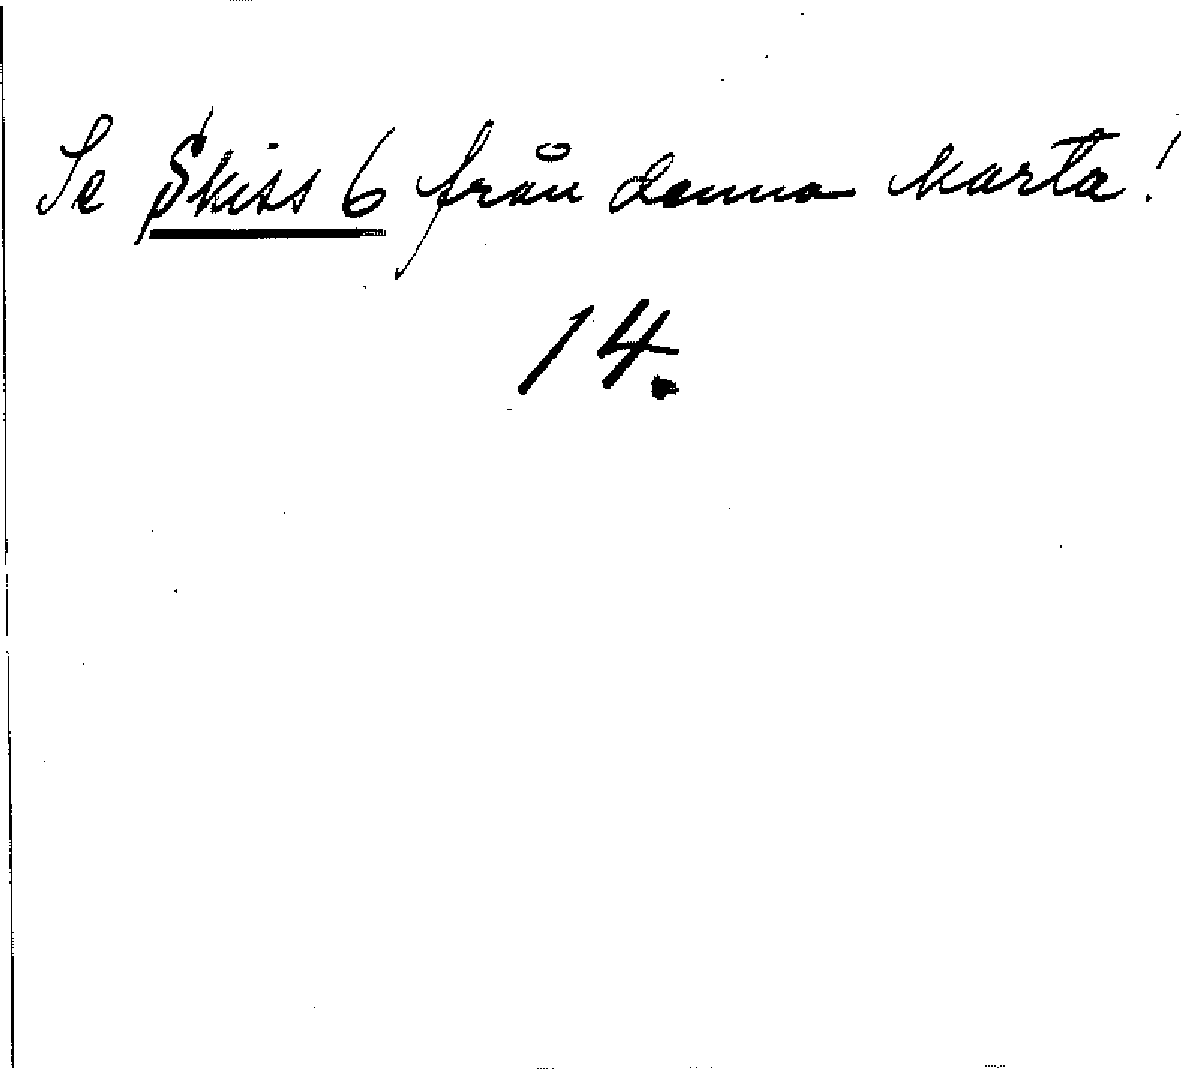 Se Skiss 6 från denna karta!
14.